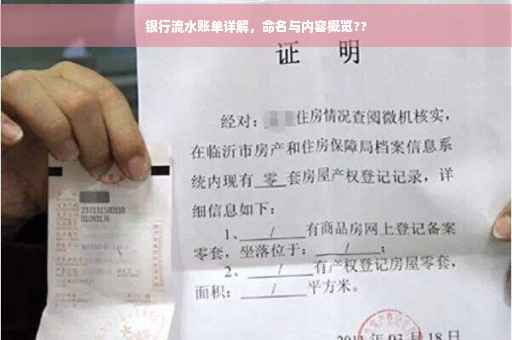 银行流水账单详解，命名与内容概览??
证 明
经对：住房情况查阅微机核实，
在临沂市房产和住房保障局档案信息系
统内现有 零 套房屋产权登记记录，详
细信息如下：
1、 / 有商品房网上登记备案
零套，坐落位于： / ；
2、 / 有产权登记房屋零套，
面积： / 平方米。